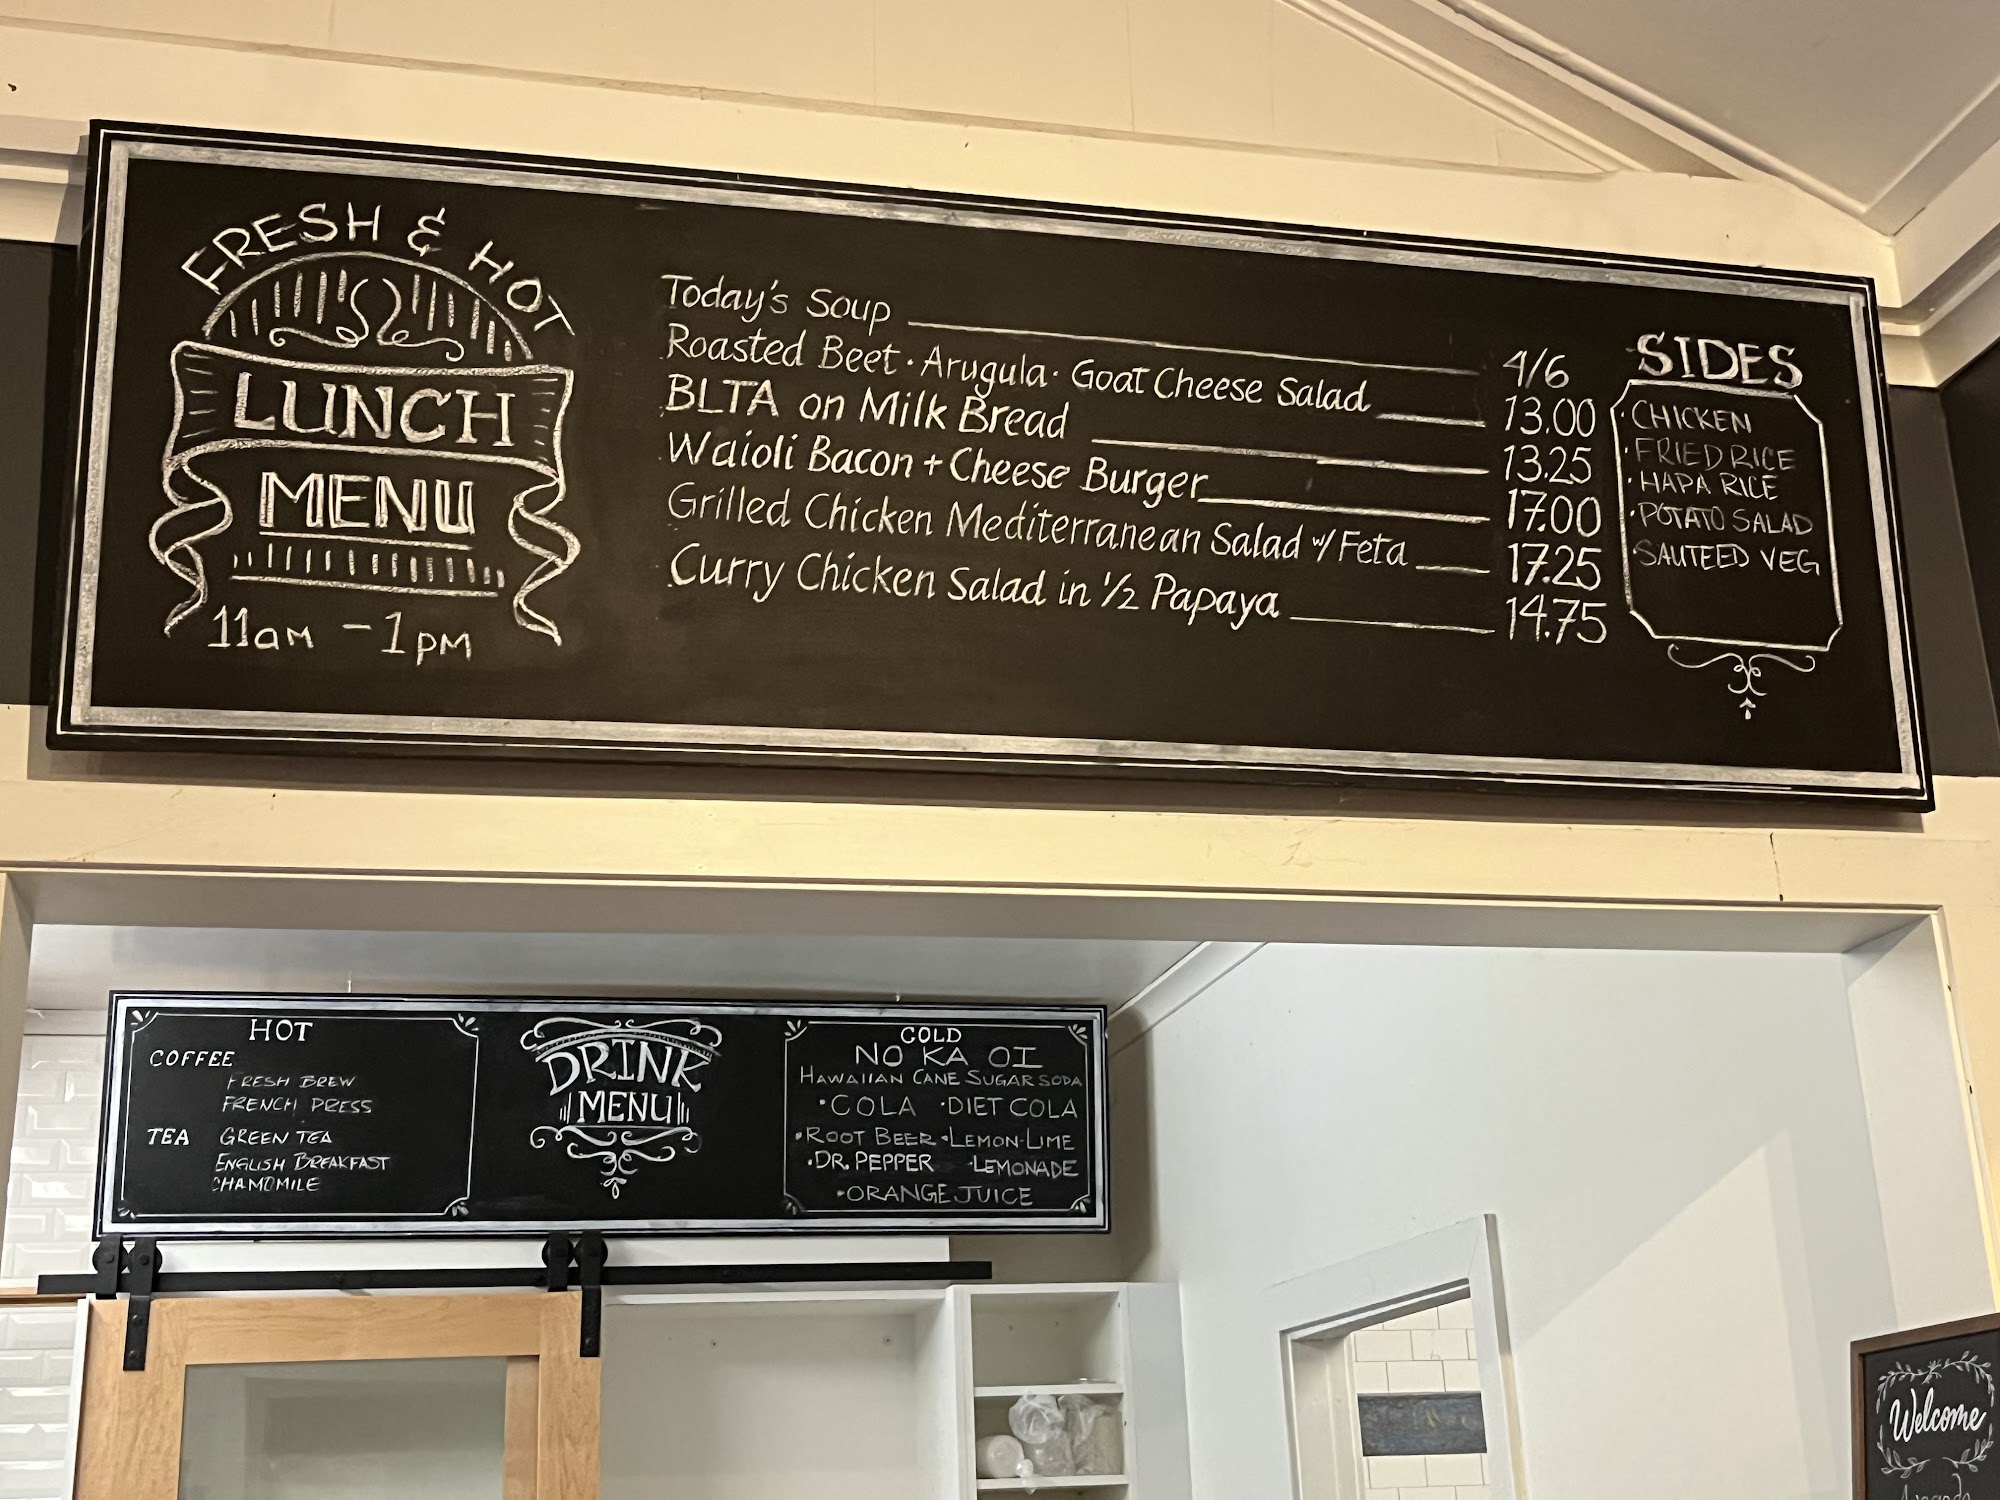 FRESH & HOT
LUNCH
MENU
11am - 1pm
Today's Soup 4/6
Roasted Beet · Arugula · Goat Cheese Salad 13.00
BLTA on Milk Bread 13.25
Waioli Bacon + Cheese Burger 17.00
Grilled Chicken Mediterranean Salad w/ Feta 17.25
Curry Chicken Salad in 1/2 Papaya 14.75
SIDES
· CHICKEN
· FRIED RICE
· HAPA RICE
· POTATO SALAD
· SAUTEED VEG
HOT
COFFEE
FRESH BREW
FRENCH PRESS
TEA GREEN TEA
ENGLISH BREAKFAST
CHAMOMILE
DRINK
MENU
COLD
NO KA OI
HAWAIIAN CANE SUGAR SODA
· COLA · DIET COLA
· ROOT BEER · LEMON-LIME
· DR. PEPPER · LEMONADE
· ORANGE JUICE
Welcome